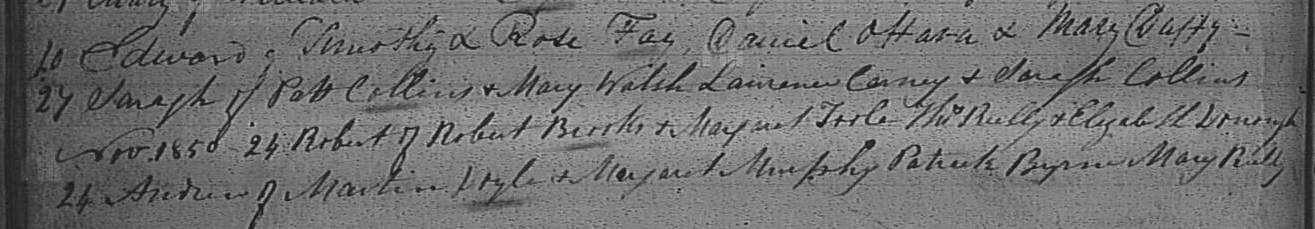 10 Edward of Timothy & Rose Fay, Daniel O Hara & Mary Duffy -
27 Saragh of Patt Collins & Mary Walsh Laurence Carney & Saragh Collins
Nov. 1850 24 Robert of Robert Brooks & Margaret Toole Thos Reilly & Elizabeth Donough
24 Andrew of Martin Doyle & Margaret Murphy Patrick Byrne Mary Reilly